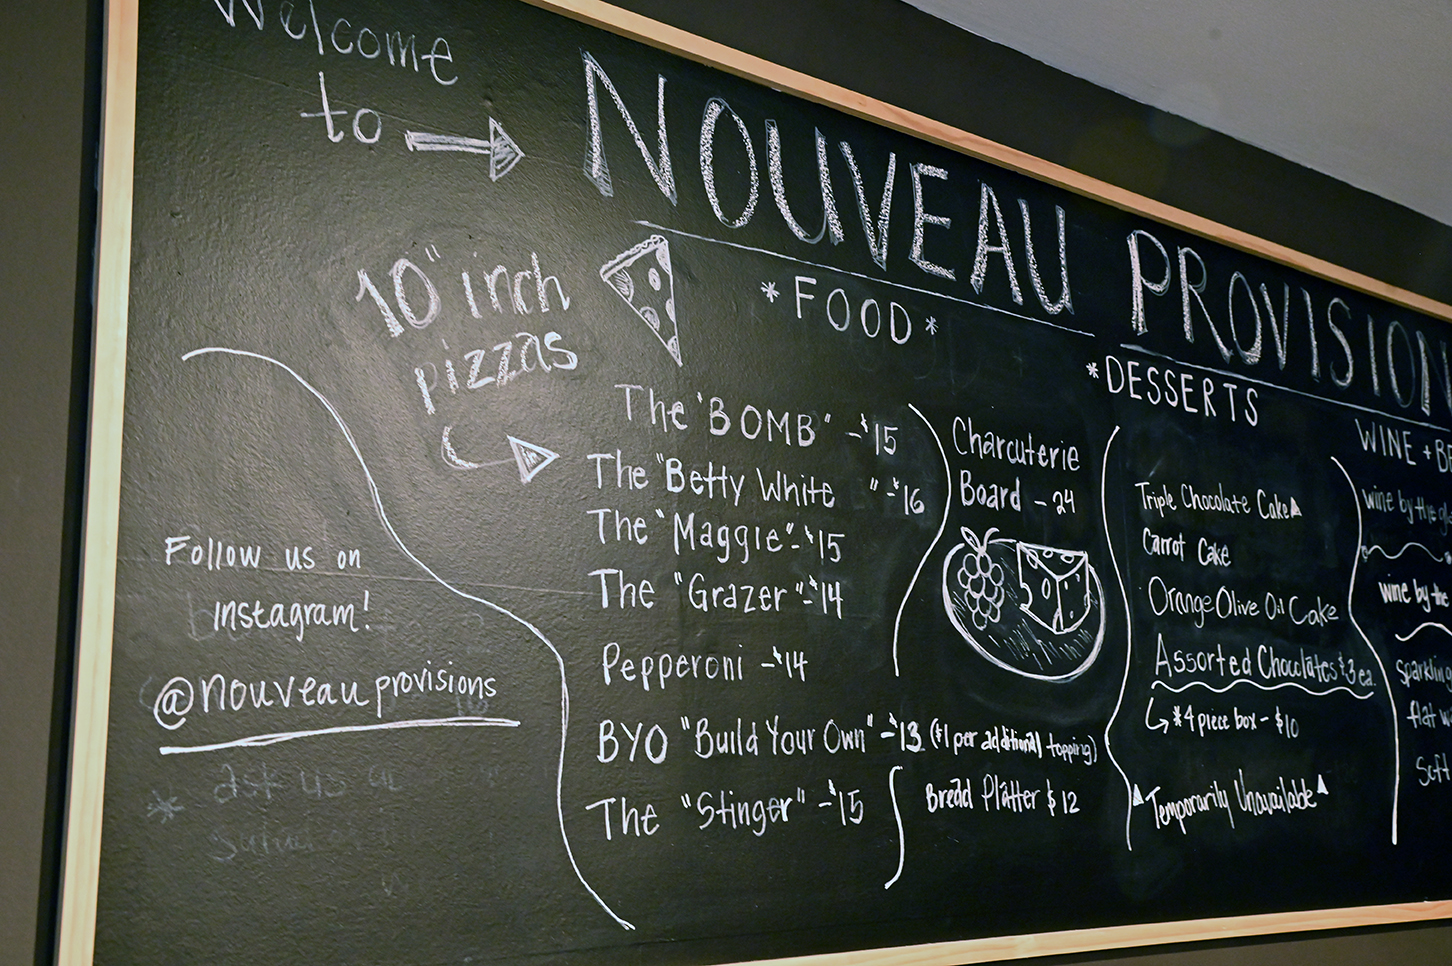 Welcome
to
NOUVEAU PROVISION
10" inch
pizzas
*FOOD*
The "BOMB" - $15
The "Betty White " - $16
The "Maggie" - $15
The "Grazer" - $14
Pepperoni - $14
BYO "Build Your Own" - $13 ($1 per additional topping)
The "Stinger" - $15
Charcuterie
Board - 24
Bread Platter $12
*DESSERTS
Triple Chocolate Cake▲
Carrot Cake
Orange Olive Oil Cake
Assorted Chocolates $3 ea.
*4 piece box - $10
▲Temporarily Unavailable▲
WINE + BE
wine by the gl
wine by the
sparkling
flat w
soft
Follow us on
Instagram!
@nouveauprovisions
* ask us a